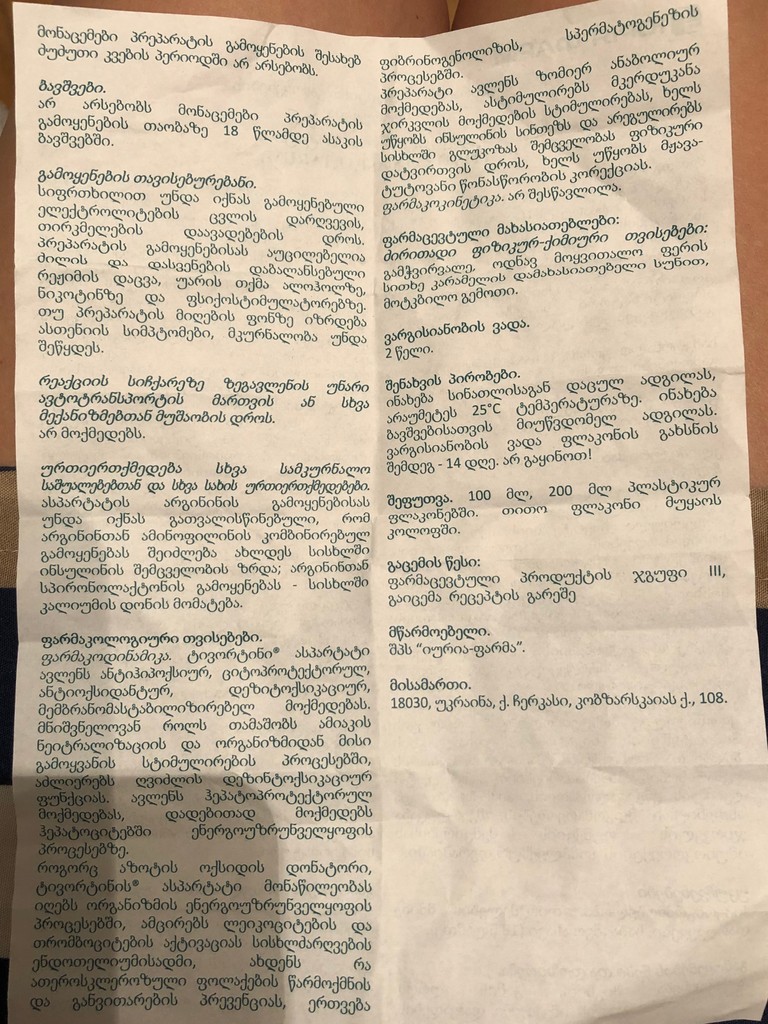 მონაცემები პრეპარატის გამოყენების შესახებ
ძუძუთი კვების პერიოდში არ არსებობს.
ბავშვები.
არ არსებობს მონაცემები პრეპარატის
გამოყენების თაობაზე 18 წლამდე ასაკის
ბავშვებში.
გამოყენების თავისებურებანი.
სიფრთხილით უნდა იქნას გამოყენებული
ელექტროლიტების ცვლის დარღვევის,
თირკმელების დაავადებების დროს.
პრეპარატის გამოყენებისას აუცილებელია
ძილის და დასვენების დაბალანსებული
რეჟიმის დაცვა, უარის თქმა ალოჰოლზე,
ნიკოტინზე და ფსიქოსტიმულატორებზე.
თუ პრეპარატის მიღების ფონზე იზრდება
ასთენიის სიმპტომები, მკურნალობა უნდა
შეწყდეს.
რეაქციის სიჩქარეზე ზეგავლენის უნარი
ავტოტრანსპორტის მართვის ან სხვა
მექანიზმებთან მუშაობის დროს.
არ მოქმედებს.
ურთიერთქმედება სხვა სამკურნალო
საშუალებებთან და სხვა სახის ურთიერთქმედებები.
ასპარტატის არგინინის გამოყენებისას
უნდა იქნას გათვალისწინებული, რომ
არგინინთან ამინოფილინის კომბინირებულ
გამოყენებას შეიძლება ახლდეს სისხლში
ინსულინის შემცველობის ზრდა; არგინინთან
სპირონოლაქტონის გამოყენებას - სისხლში
კალიუმის დონის მომატება.
ფარმაკოლოგიური თვისებები.
ფარმაკოდინამიკა. ტივორტინი® ასპარტატი
ავლენს ანტიჰიპოქსიურ, ციტოპროტექტორულ,
ანტიოქსიდანტურ, დეზიტოქსიკაციურ,
მემბრანომასტაბილიზირებელ მოქმედებას.
მნიშვნელოვან როლს თამაშობს ამიაკის
ნეიტრალიზაციის და ორგანიზმიდან მისი
გამოყვანის სტიმულირების პროცესებში,
აძლიერებს ღვიძლის დეზინტოქსიკაციურ
ფუნქციას. ავლენს ჰეპატოპროტექტორულ
მოქმედებას, დადებითად მოქმედებს
ჰეპატოციტებში ენერგოუზრუნველყოფის
პროცესებზე.
როგორც აზოტის ოქსიდის დონატორი,
ტივორტინის® ასპარტატი მონაწილეობას
იღებს ორგანიზმის ენერგოუზრუნველყოფის
პროცესებში, ამცირებს ლეიკოციტების და
თრომბოციტების აქტივაციას სისხლძარღვების
ენდოთელიუმისადმი, ახდენს რა
ათეროსკლეროზული ფოლაქების წარმოქმნის
და განვითარების პრევენციას, ერთვება
ფიბრინოგენოლიზის, სპერმატოგენეზის
პროცესებში.
პრეპარატი ავლენს ზომიერ ანაბოლიურ
მოქმედებას, ასტიმულირებს მკერდუკანა
ჯირკვლის მოქმედების სტიმულირებას, ხელს
უწყობს ინსულინის სინთეზს და არეგულირებს
სისხლში გლუკოზას შემცველობას ფიზიკური
დატვირთვის დროს, ხელს უწყობს მჟავა-
ტუტოვანი წონასწორობის კორექციას.
ფარმაკოკინეტიკა. არ შესწავლილა.
ფარმაცევტული მახასიათებლები:
ძირითადი ფიზიკურ-ქიმიური თვისებები:
გამჭვირვალე, ოდნავ მოყვითალო ფერის
სითხე კარამელის დამახასიათებელი სუნით,
მოტკბილო გემოთი.
ვარგისიანობის ვადა.
2 წელი.
შენახვის პირობები.
ინახება სინათლისაგან დაცულ ადგილას,
არაუმეტეს 25°C ტემპერატურაზე. ინახება
ბავშვებისათვის მიუწვდომელ ადგილას.
ვარგისიანობის ვადა ფლაკონის გახსნის
შემდეგ - 14 დღე. არ გაყინოთ!
შეფუთვა. 100 მლ, 200 მლ პლასტიკურ
ფლაკონებში. თითო ფლაკონი მუყაოს
კოლოფში.
გაცემის წესი:
ფარმაცევტული პროდუქტის ჯგუფი III,
გაიცემა რეცეპტის გარეშე
მწარმოებელი.
შპს “იურია-ფარმა”.
მისამართი.
18030, უკრაინა, ქ. ჩერკასი, კობზარსკაიას ქ., 108.